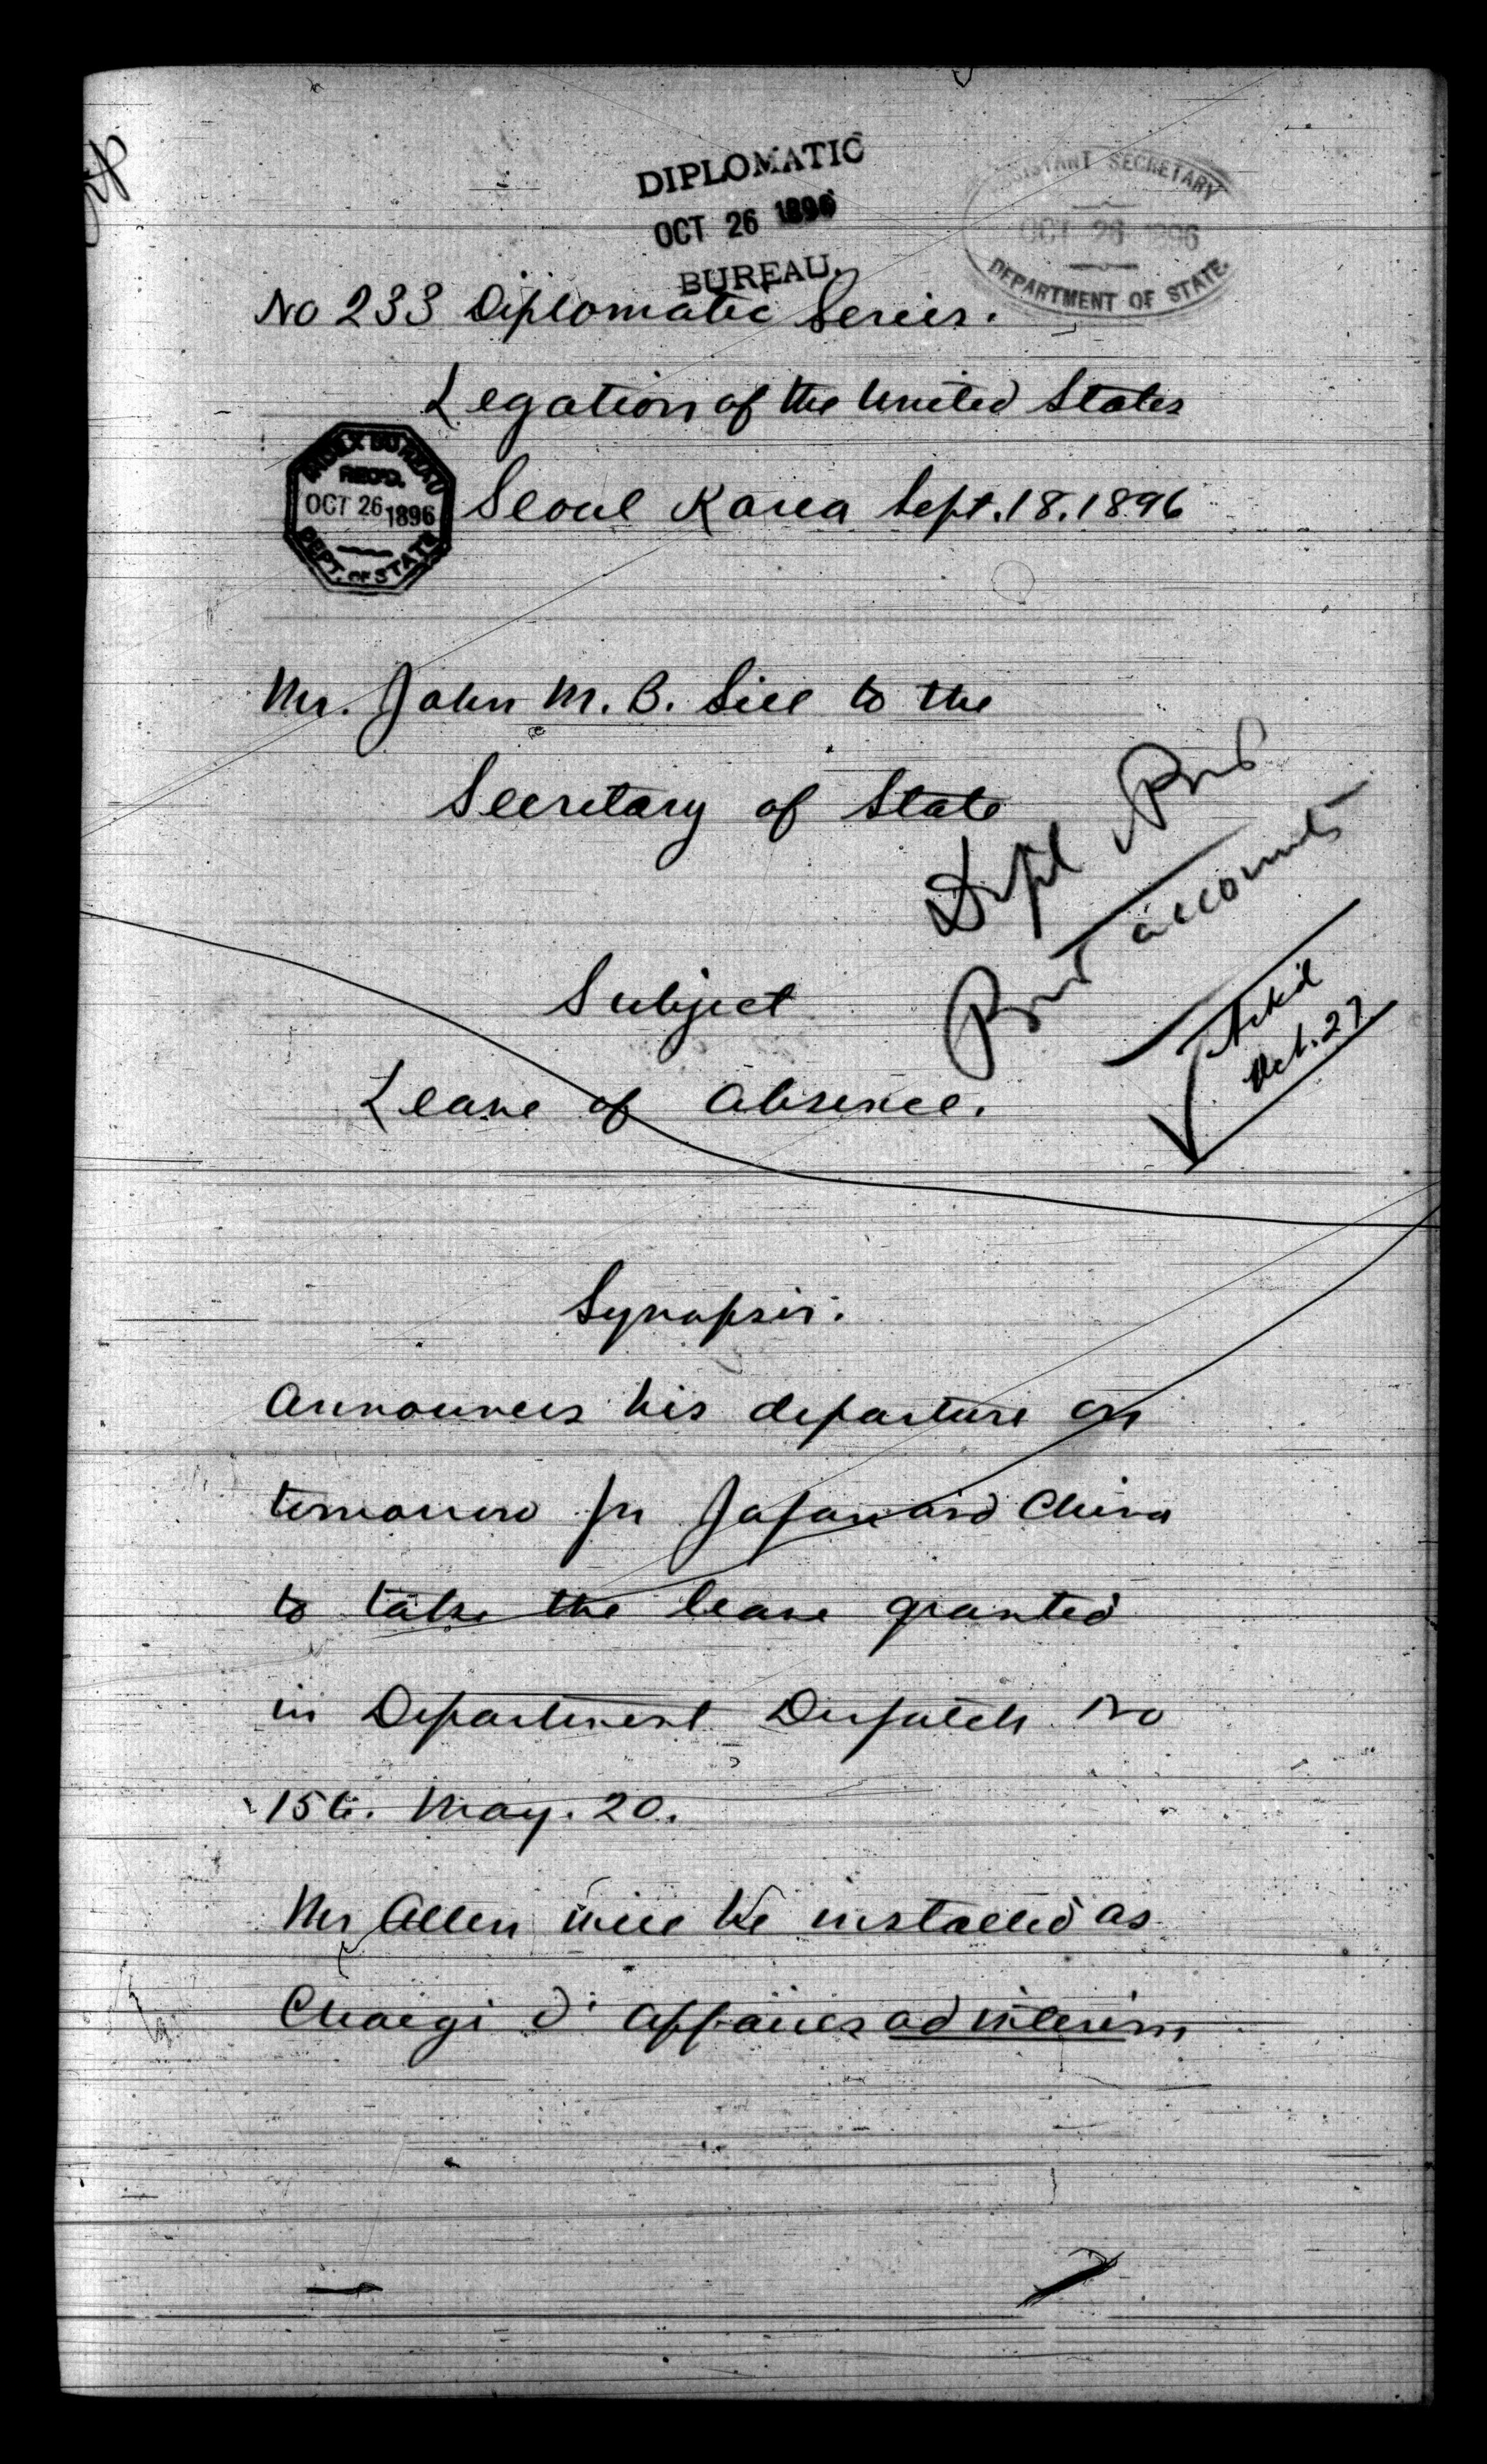 DIPLOMATIC
OCT 26 1896
BUREAU.
ASSISTANT SECRETARY
OCT 26 1896
DEPARTMENT OF STATE.
No 233 Diplomatic Series.
Legation of the United States
INDEX BUREAU
REC'D.
OCT 26 1896
DEPT. OF STATE
Seoul Korea Sept. 18. 1896
Mr. John M. B. Sill to the
Secretary of State
Dipl Bus
Bus accounts
Ack'd
Oct. 27
Subject
Leave of absence.
Synopsis.
Announces his departure on
tomorrow for Japan and China
to take the leave granted
in Department Despatch No
156. May. 20.
Mr Allen will be installed as
Charge d' affaires ad interim